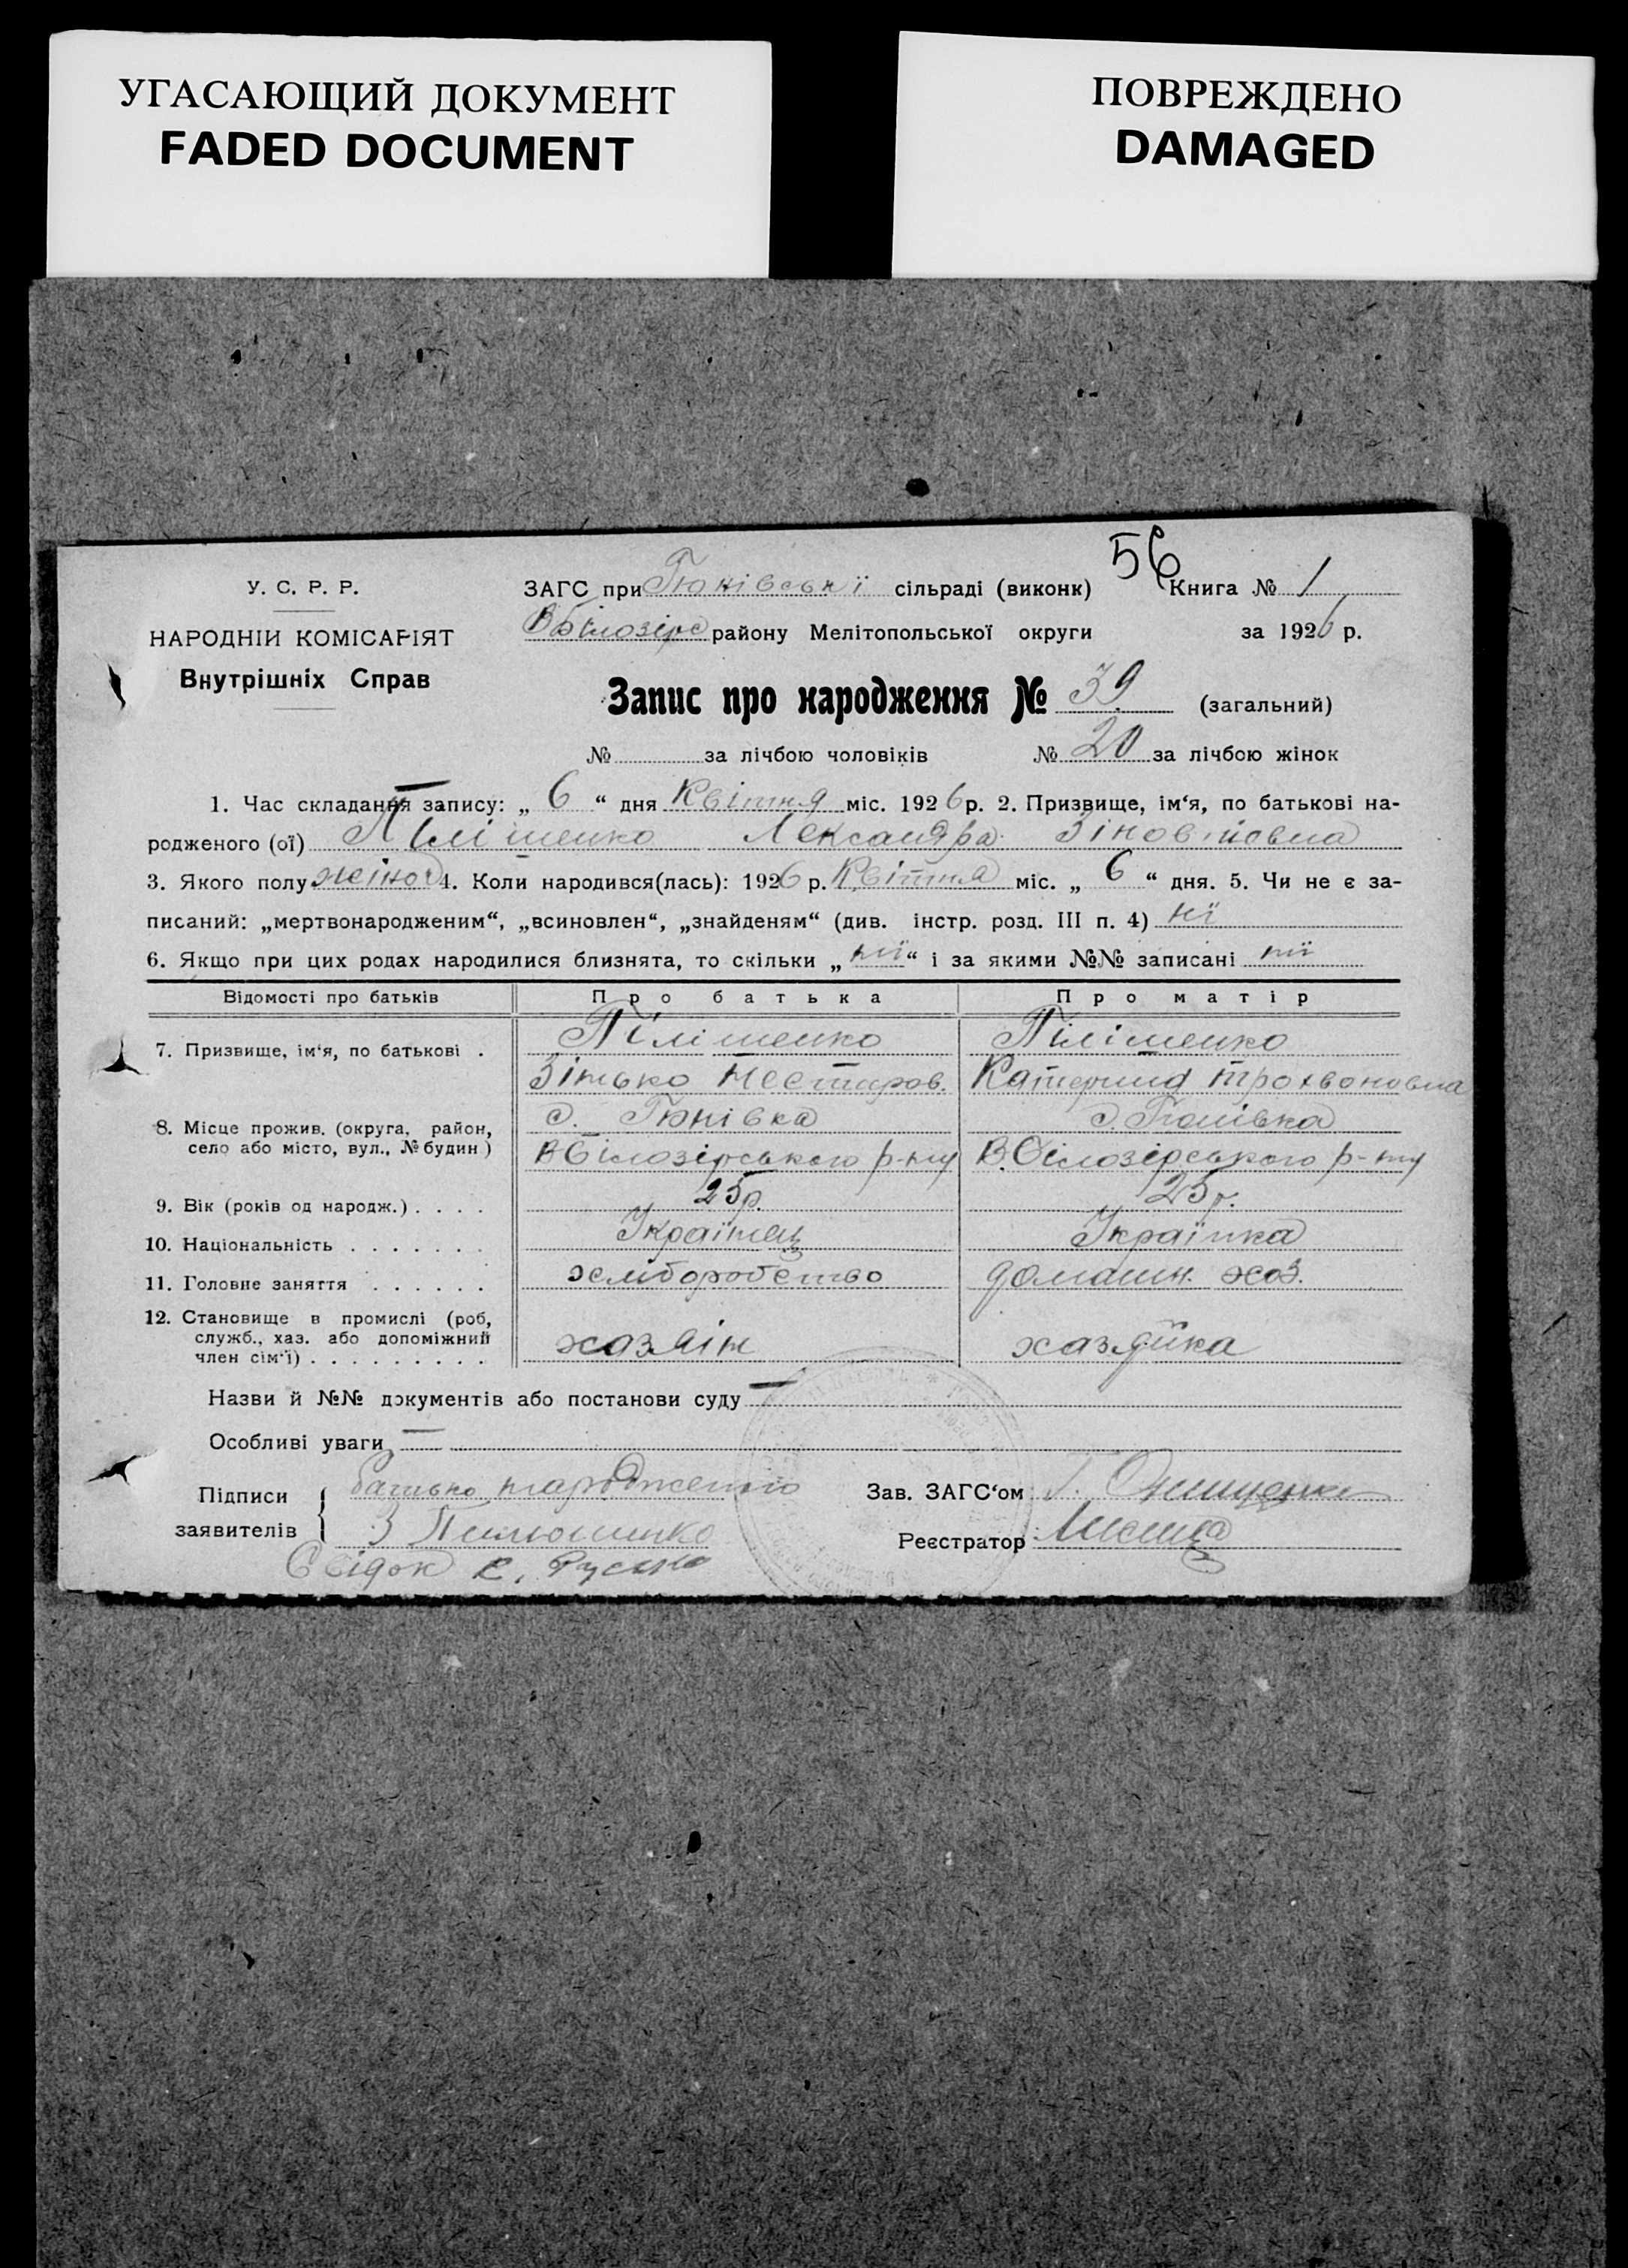 УГАСАЮЩИЙ ДОКУМЕНТ
FADED DOCUMENT
ПОВРЕЖДЕНО
DAMAGED
56
У. С. Р. Р.
НАРОДНІЙ КОМІСАРІЯТ
Внутрішніх Справ
ЗАГС при Гюнівські сільраді (виконк) Книга № 1
ВБілозірс району Мелітопольської округи за 1926 р.
Запис про народження № 39 (загальний)
№ за лічбою чоловіків № 20 за лічбою жінок
1. Час складання запису: „ 6 “ дня Квітня міс. 1926 р. 2. Призвище, ім‘я, по батькові на-
родженого (ої) Пілішенко Лександра Зіновійовна
3. Якого полу жіноч 4. Коли народився(лась): 1926 р. Квітня міс. „ 6 “ дня. 5. Чи не є за-
писаний: „мертвонародженим“, „всиновлен“, „знайденям“ (див. інстр. розд. III п. 4) нї
6. Якщо при цих родах народилися близнята, то скільки „ нї “ і за якими №№ записані нї
Відомості про батьків Про батька Про матір
7. Призвище, ім‘я, по батькові . Пілішенко Пілішенко
Зінько Нестиров. Катерина Трохвоновна
8. Місце прожив. (округа, район, село або місто, вул., № будин) с. Гюнівка с. Гюнівка
ВБілозірського р-ну В.Білозірського р-ну
9. Вік (років од народж.) . . . . 25р. 25р.
10. Національність . . . . . . . Українец Українка
11. Головне заняття . . . . . . хліборобство домашн. хоз.
12. Становище в промислі (роб,
служб., хаз. або допоміжний
член сім‘ї) . . . . . . . . . хазяін хазяйка
Назви й №№ документів або постанови суду —
Особливі уваги —
Підписи заявителів { батько народженого
З Пилюшинко
Свідок К.
Зав. ЗАГС‘ом Г. Онищенко
Реєстратор